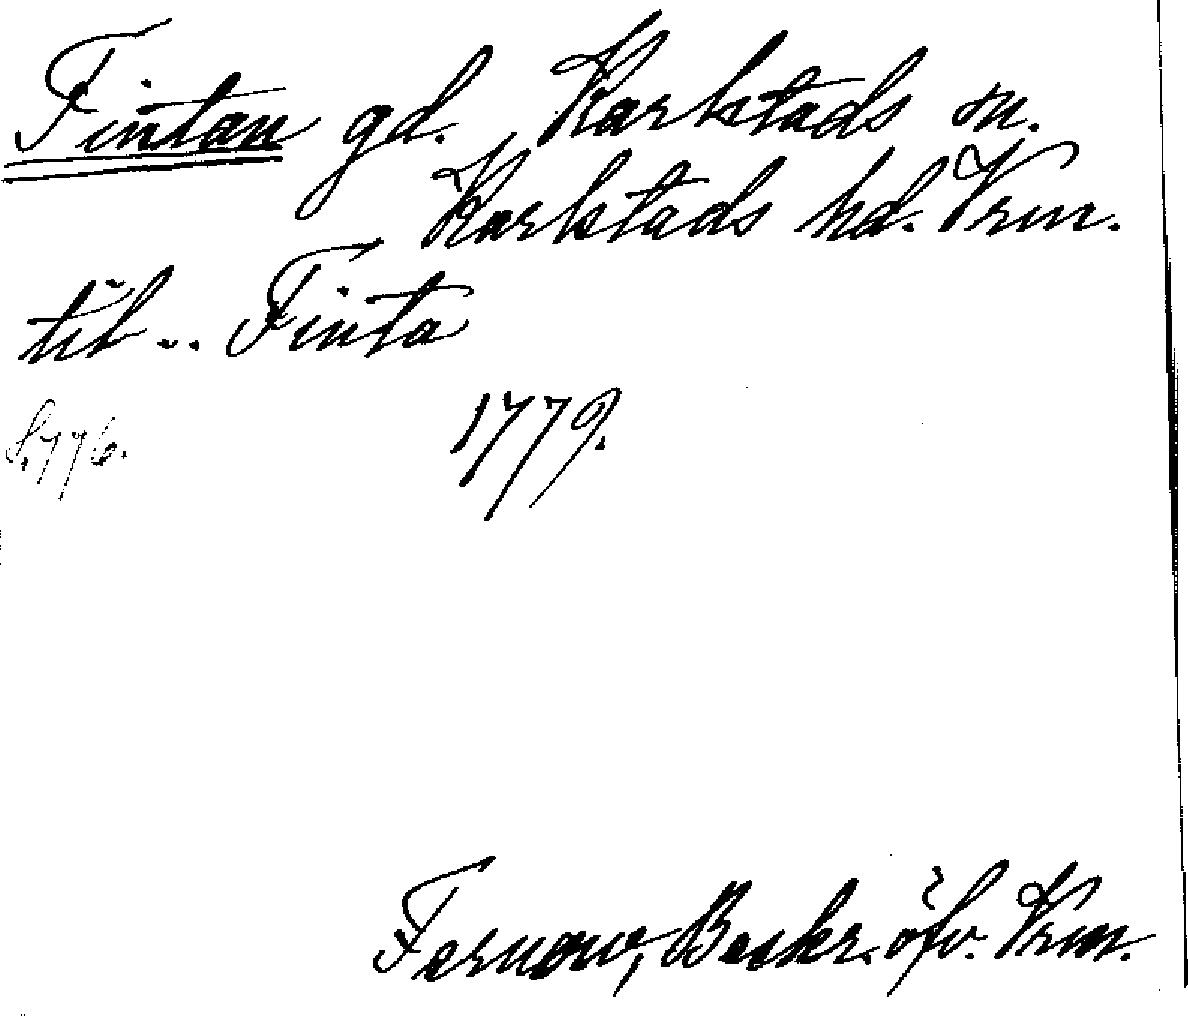 Fintan gd. Karlstads sn.
Karlstads hd. Vrm.
till .. Finta
1779.
S. 776.
Fernow, Beskr. öfv. Vrm.